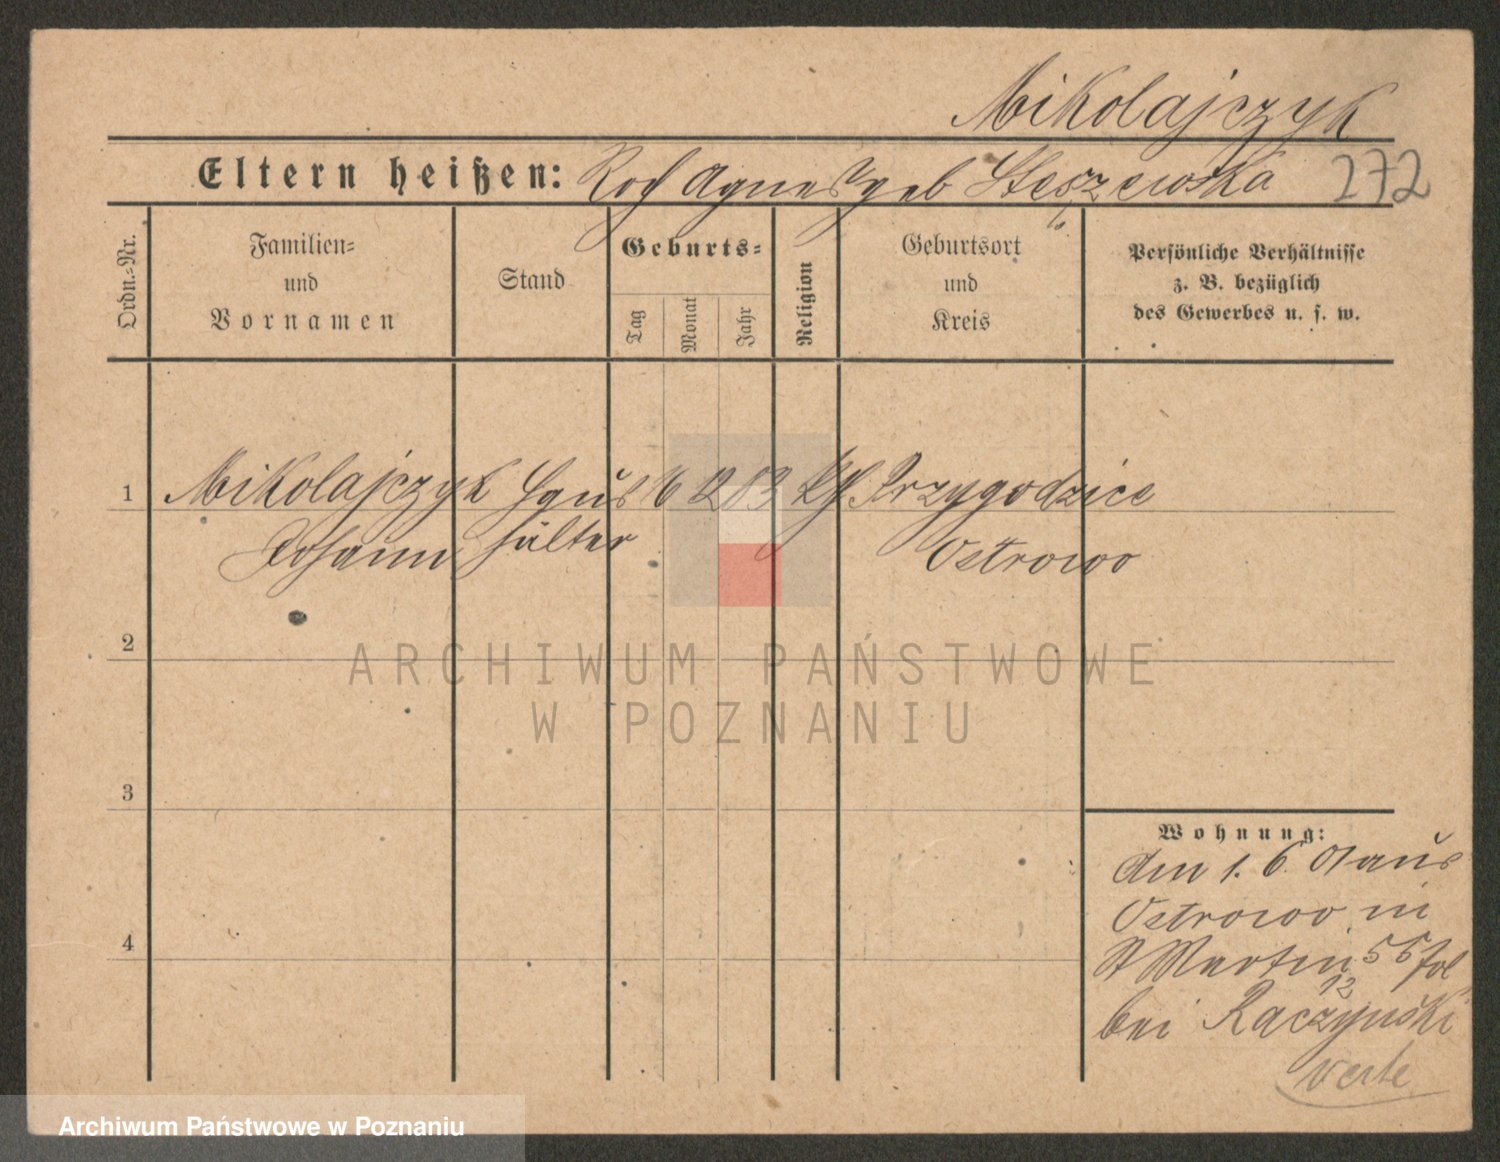 Mikolajczyk
Eltern heißen: Roch Agnes geb Steszewska 272
Ordn.-Nr.
Familien-
und
Vornamen
Stand
Geburts-
Tag
Monat
Jahr
Religion
Geburtsort
und
Kreis
Persönliche Verhältnisse
z. B. bezüglich
des Gewerbes u. s. w.
1 Mikolajczyk Haus 16 12 83 kth Przygodzice
Johann hälter Ostrowo
2
3
4
Wohnung:
Am 1. 6. 01 aus
Ostrowo in
St Martin 55
12
bei Raczynski
verte
ARCHIWUM PAŃSTWOWE
W POZNANIU
Archiwum Państwowe w Poznaniu